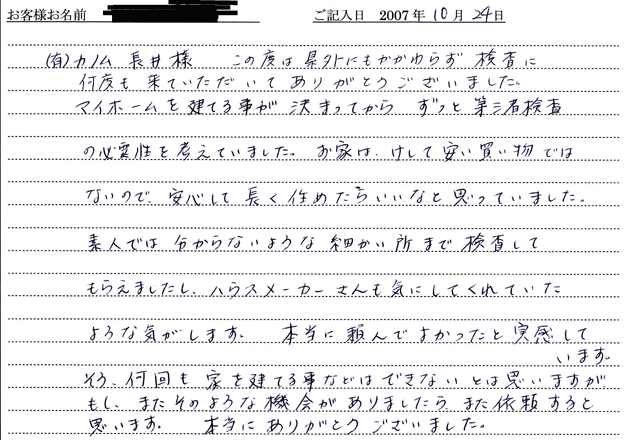 お客様お名前 ご記入日 2007年10月24日
(有)カノム 長井様 この度は県外にもかかわらず 検査に
何度も 来ていただいて ありがとうございました。
マイホームを建てる事が 決まってから ずっと 第三者検査
の必要性を考えていました。お家は、けして安い買い物では
ないので、安心して 長く 住めたらいいなと思っていました。
素人では 分からないような 細かい所まで 検査して
もらえましたし、ハウスメーカーさんも気にしてくれていた
ような気がします。 本当に頼んで よかったと実感して
います。
そう、何回も 家を建てる事などはできないとは思いますが
もし、またそのような機会がありましたら、また依頼すると
思います。 本当にありがとうございました。